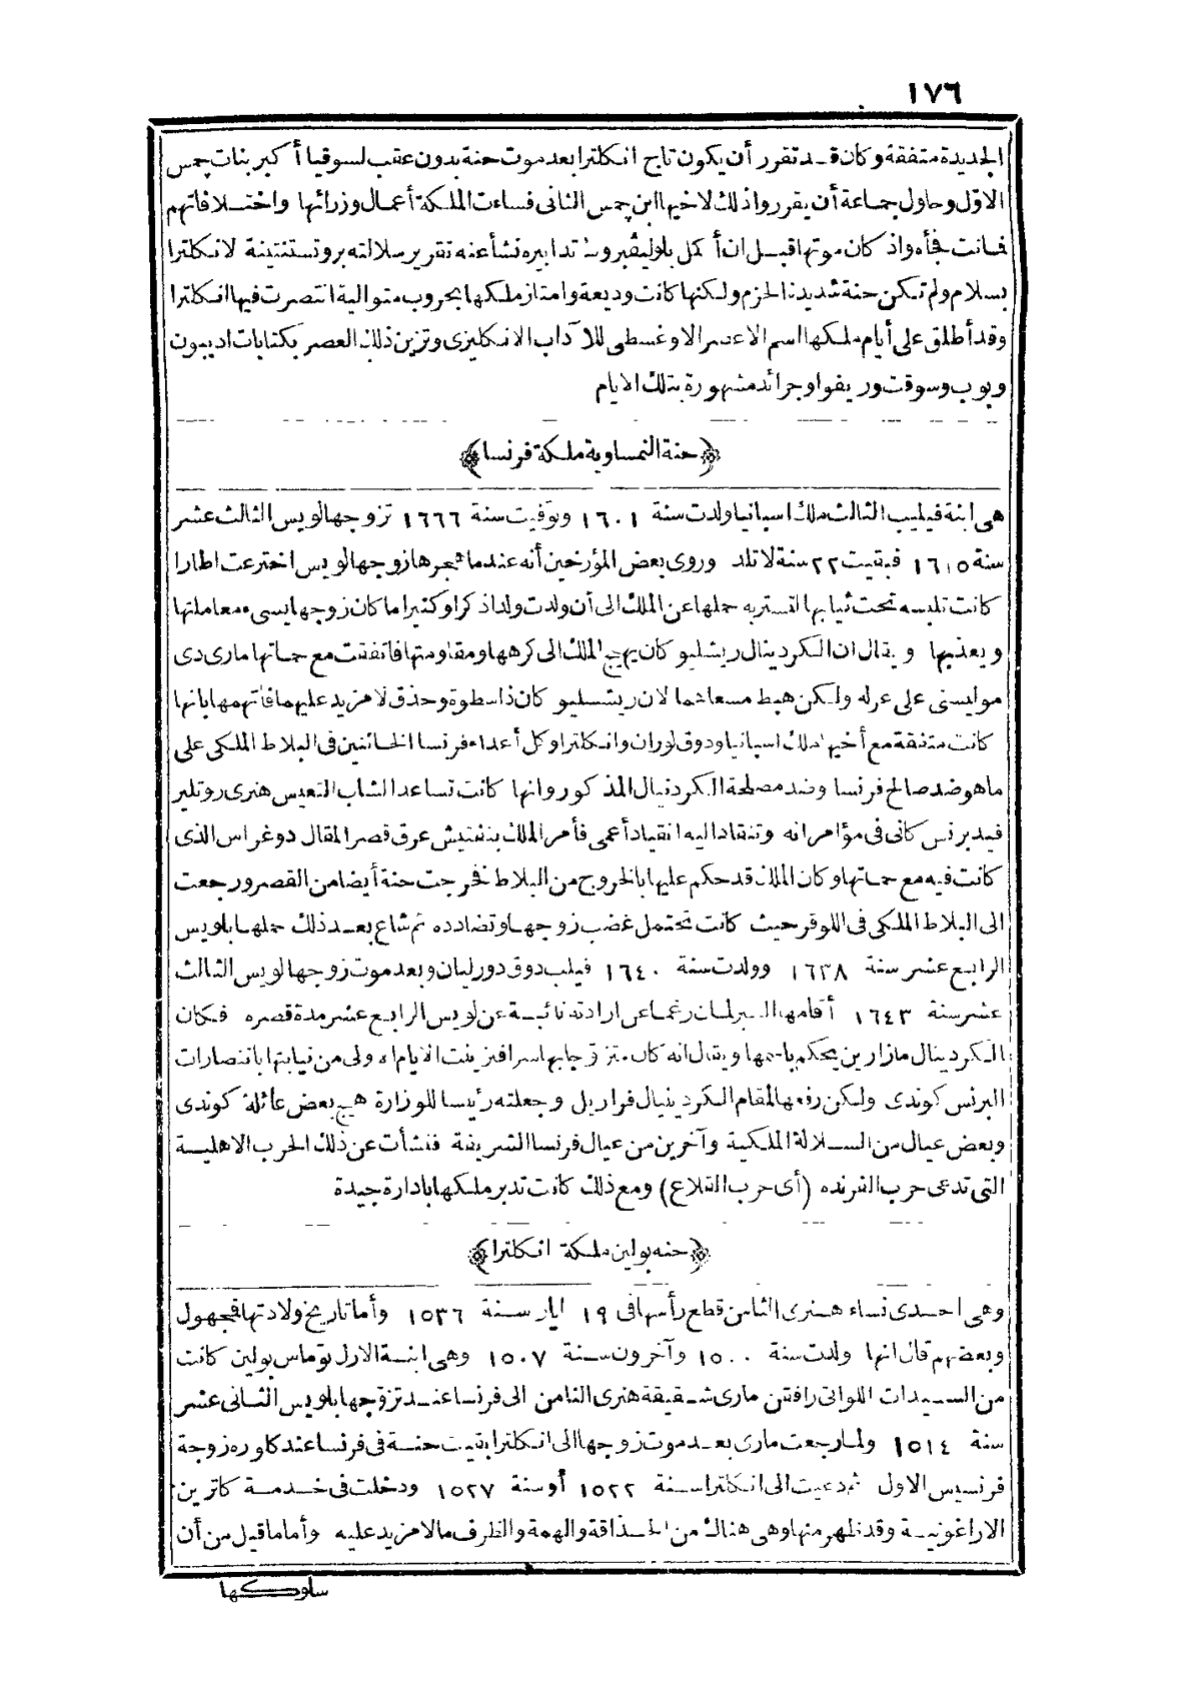 ١٧٦
الجديدة متفقة وكان قد تقرر أن يكون تاج انكلترا بعد موت حنة بدون عقب لسوفيا أكبر بنات جمس
الاوّل وحاول جماعة أن يقرروا ذلك لاخيها ابن جمس الثانى فساءت الملكة أعمال وزرائها واختلافاتهم
فماتت فجأه واذ كان موتها قبل ان أكمل بلوليڤبروٮ تدابيره نشأ عنه تقرير سلالته بروتستنتينة لانكلترا
بسلام ولم تكن حنة شديدة الحزم ولكنها كانت وديعة وامتاز ملكها بحروب متوالية انتصرت فيها انكلترا
وقد أطلق على أيام ملكها اسم الاعصر الاوغسطى للآداب الانكليزى وتزين ذلك العصر بكتابات اديبون
وبوب وسوقت وريفوا وجرائد مشهورة بتلك الايام
﴿حنة النمساوية ملكة فرنسا﴾
هى ابنة فيليب الثالث ملك اسبانيا ولدت سنة ١٦٠١ وتوفيت سنة ١٦٦٦ تزوجها لويس الثالث عشر
سنة ١٦١٥ فبقيت ٢٢ سنة لا تلد وروى بعض المؤرخين أنه عندما هجرها زوجها لويس اخترعت اطارا
كانت تلبسه تحت ثيابها لتستر به حملها عن الملك الى أن ولدت ولدا ذكرا وكثيرا ما كان زوجها يسىء معاملتها
ويعذبها ويقال ان الكردينال ريشليو كان يهيج الملك الى كرهها ومقاومتها فاتفقت مع حماتها مارى دى
موليسى على عزله ولكن هبط مسعاهما لان ريشسليو كان ذا سطوة وحذق لا مزيد عليهما فاتهمها بانها
كانت متفقة مع أخيها ملك اسبانيا ودوق لوران وانكلترا وكل أعداء فرنسا الخائنين فى البلاط الملكى على
ما هو ضد صالح فرنسا وضد مصلحة الكردنيال المذكور وانها كانت تساعد الشاب التعيس هنرى روتلير
فيد برنس كانى فى مؤامراته وتنقاد اليه انقيادا أعمى فأمر الملك بتفتيش عرق قصر المقال دوغراس الذى
كانت فيه مع حماتها وكان الملك قد حكم عليها بالخروج من البلاط فخرجت حنة أيضا من القصر ورجعت
الى البلاط الملكى فى اللوفر حيث كانت تحتمل غضب زوجها وتضادده ثم شاع بعد ذلك حملها بلويس
الرابع عشر سنة ١٦٣٨ وولدت سنة ١٦٤٠ فيليب دوق دورليان وبعد موت زوجها لويس الثالث
عشر سنة ١٦٤٣ أقامها البرلمان رغما عن ارادته نائبة عن لويس الرابع عشر مدة قصره فكان
الكردينال مازارين يحكم باسمها ويقال انه كان متزوّجا بها سرا فزينت الايام الاولى من نيابتها بانتصارات
البرنس كوندى ولكن رفعها لمقام الكردينيال فراريل وجعلته رئيسا للوزارة هيج بعض عائلة كوندى
وبعض عيال من السلالة الملكية وآخرين من عيال فرنسا الشريفة فنشأت عن ذلك الحرب الاهلية
التى تدعى حرب الفرنده (أى حرب القلاع) ومع ذلك كانت تدبر ملكها بادارة جيدة
﴿حنه بولين ملكة انكلترا﴾
وهى احدى نساء هنرى الثامن قطع رأسها فى ١٩ ايار سنة ١٥٣٦ وأما تاريخ ولادتها فمجهول
وبعضهم قال انها ولدت سنة ١٥٠٠ وآخرون سنة ١٥٠٧ وهى ابنة الارل توماس بولين كانت
من السيدات اللواتى رافقن مارى شقيقة هنرى الثامن الى فرنسا عند تزوّجها بلويس الثانى عشر
سنة ١٥١٤ ولما رجعت مارى بعد موت زوجها الى انكلترا بقيت حنة فى فرنسا عند كاوره زوجة
فرنسيس الاول ثم دعيت الى انكلترا سنة ١٥٢٢ أو سنة ١٥٢٧ ودخلت فى خدمة كاترين
الاراغونية وقد ظهر منها وهى هناك من الحذاقة والهمة والظرف مالا مزيد عليه وأما ما قيل من أن
سلوكها